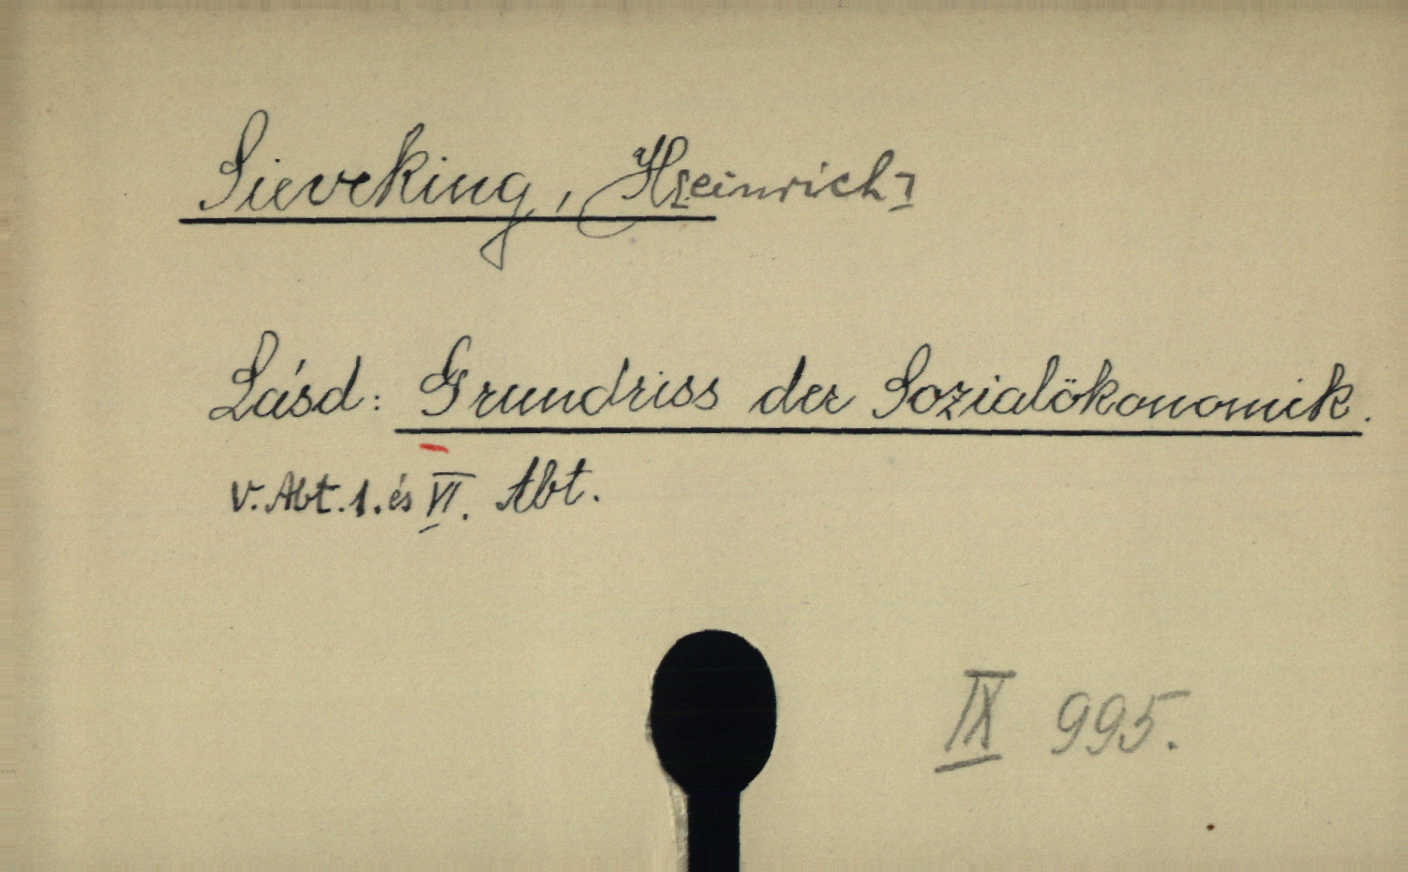 Sieveking, H[einrich]
Lásd: Grundriss der Sozialökonomik.
V. Abt. 1. és VI. Abt.
IX 995.